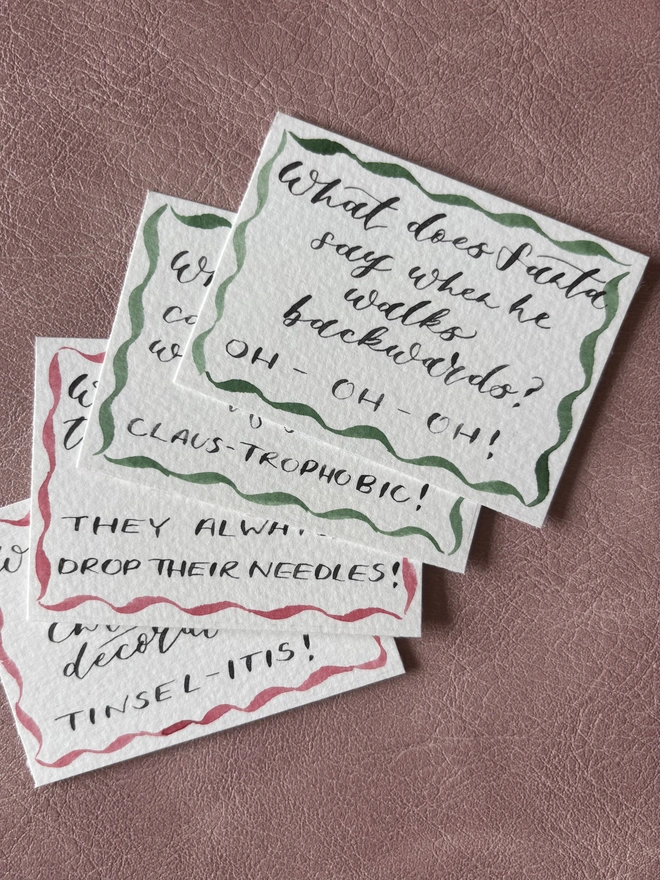 What does Santa
say when he
walks
backwards?
OH - OH - OH!
CLAUS-TROPHOBIC!
THEY
DROP THEIR NEEDLES!
TINSEL-ITIS!